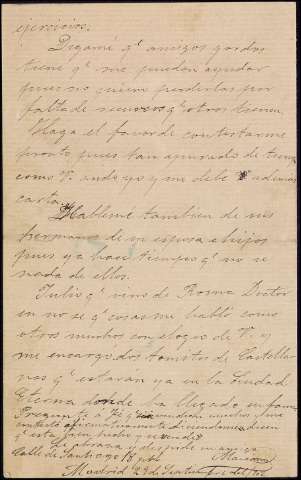 ejercicios.
Digamé q.e amigos gordos
tiene q.e me puedan ayudar
pues no quiero perderlos por
falta de recursos q.e otros tienen.
Haga el favor de contestarme
pronto pues tan apurado de tiempo
como V. ando yo y me debe V. ademas
carta.
Hableme tambien de sus
hermanos de su esposa e hijos
pues ya hace tiempo q.e no se
nada de ellos.
Julio q.e vino de Roma Doctor
en no se q.e cosas me habló como
otros muchos con elogio de V. y
me encargó dos tomitos de Castella
nos q.e estarán ya en la Ciudad
Eterna donde ha llegado
muchos y me
contestó afirmativamente diciendome
q.e está
Le abraza y despide su amigo
Calle de Santiago 18 Mariano
Madrid 29 de